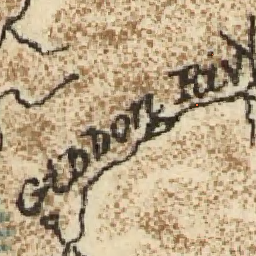 Gibbon Riv